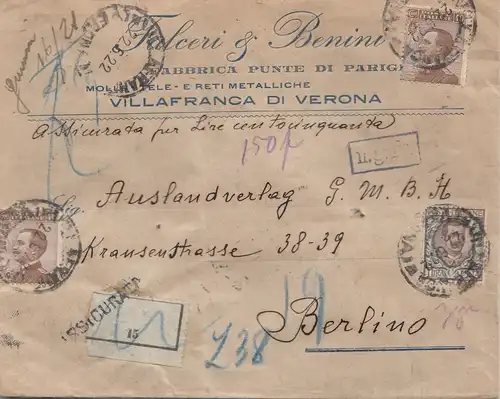 Falceri & Benini
FABBRICA PUNTE DI PARIGI
MOLLE, TELE- E RETI METALLICHE
VILLAFRANCA DI VERONA
22.6.22
Assicurata per Lire centocinquanta
150
Sig.
Auslandverlag G. M. B. H
Kransenstrasse 38-39
ASSICURATA
15
19
238
Berlino